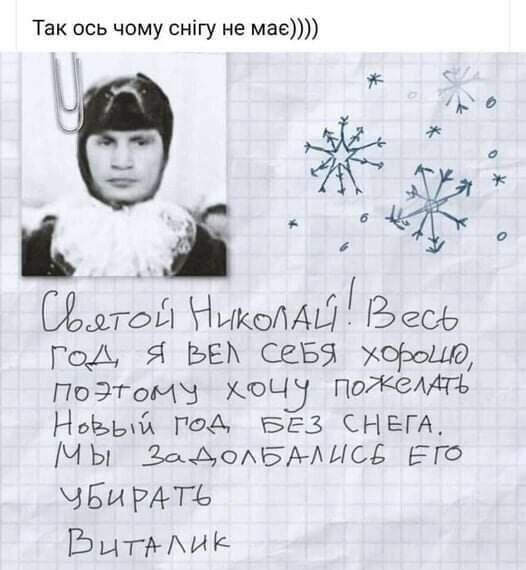 Так ось чому снігу не має))))
Святой Николай! Весь
год я вел себя хорошо,
поэтому хочу пожелать
Новый год без снега.
Мы задолбались его
убирать
Виталик